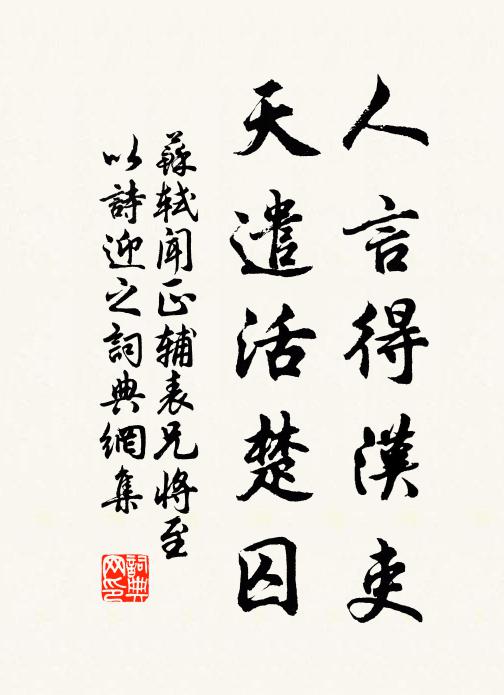 人言得漢吏
天遣活楚囚
蘇軾聞正輔表兄將至
以詩迎之詞典網集
詞典網印